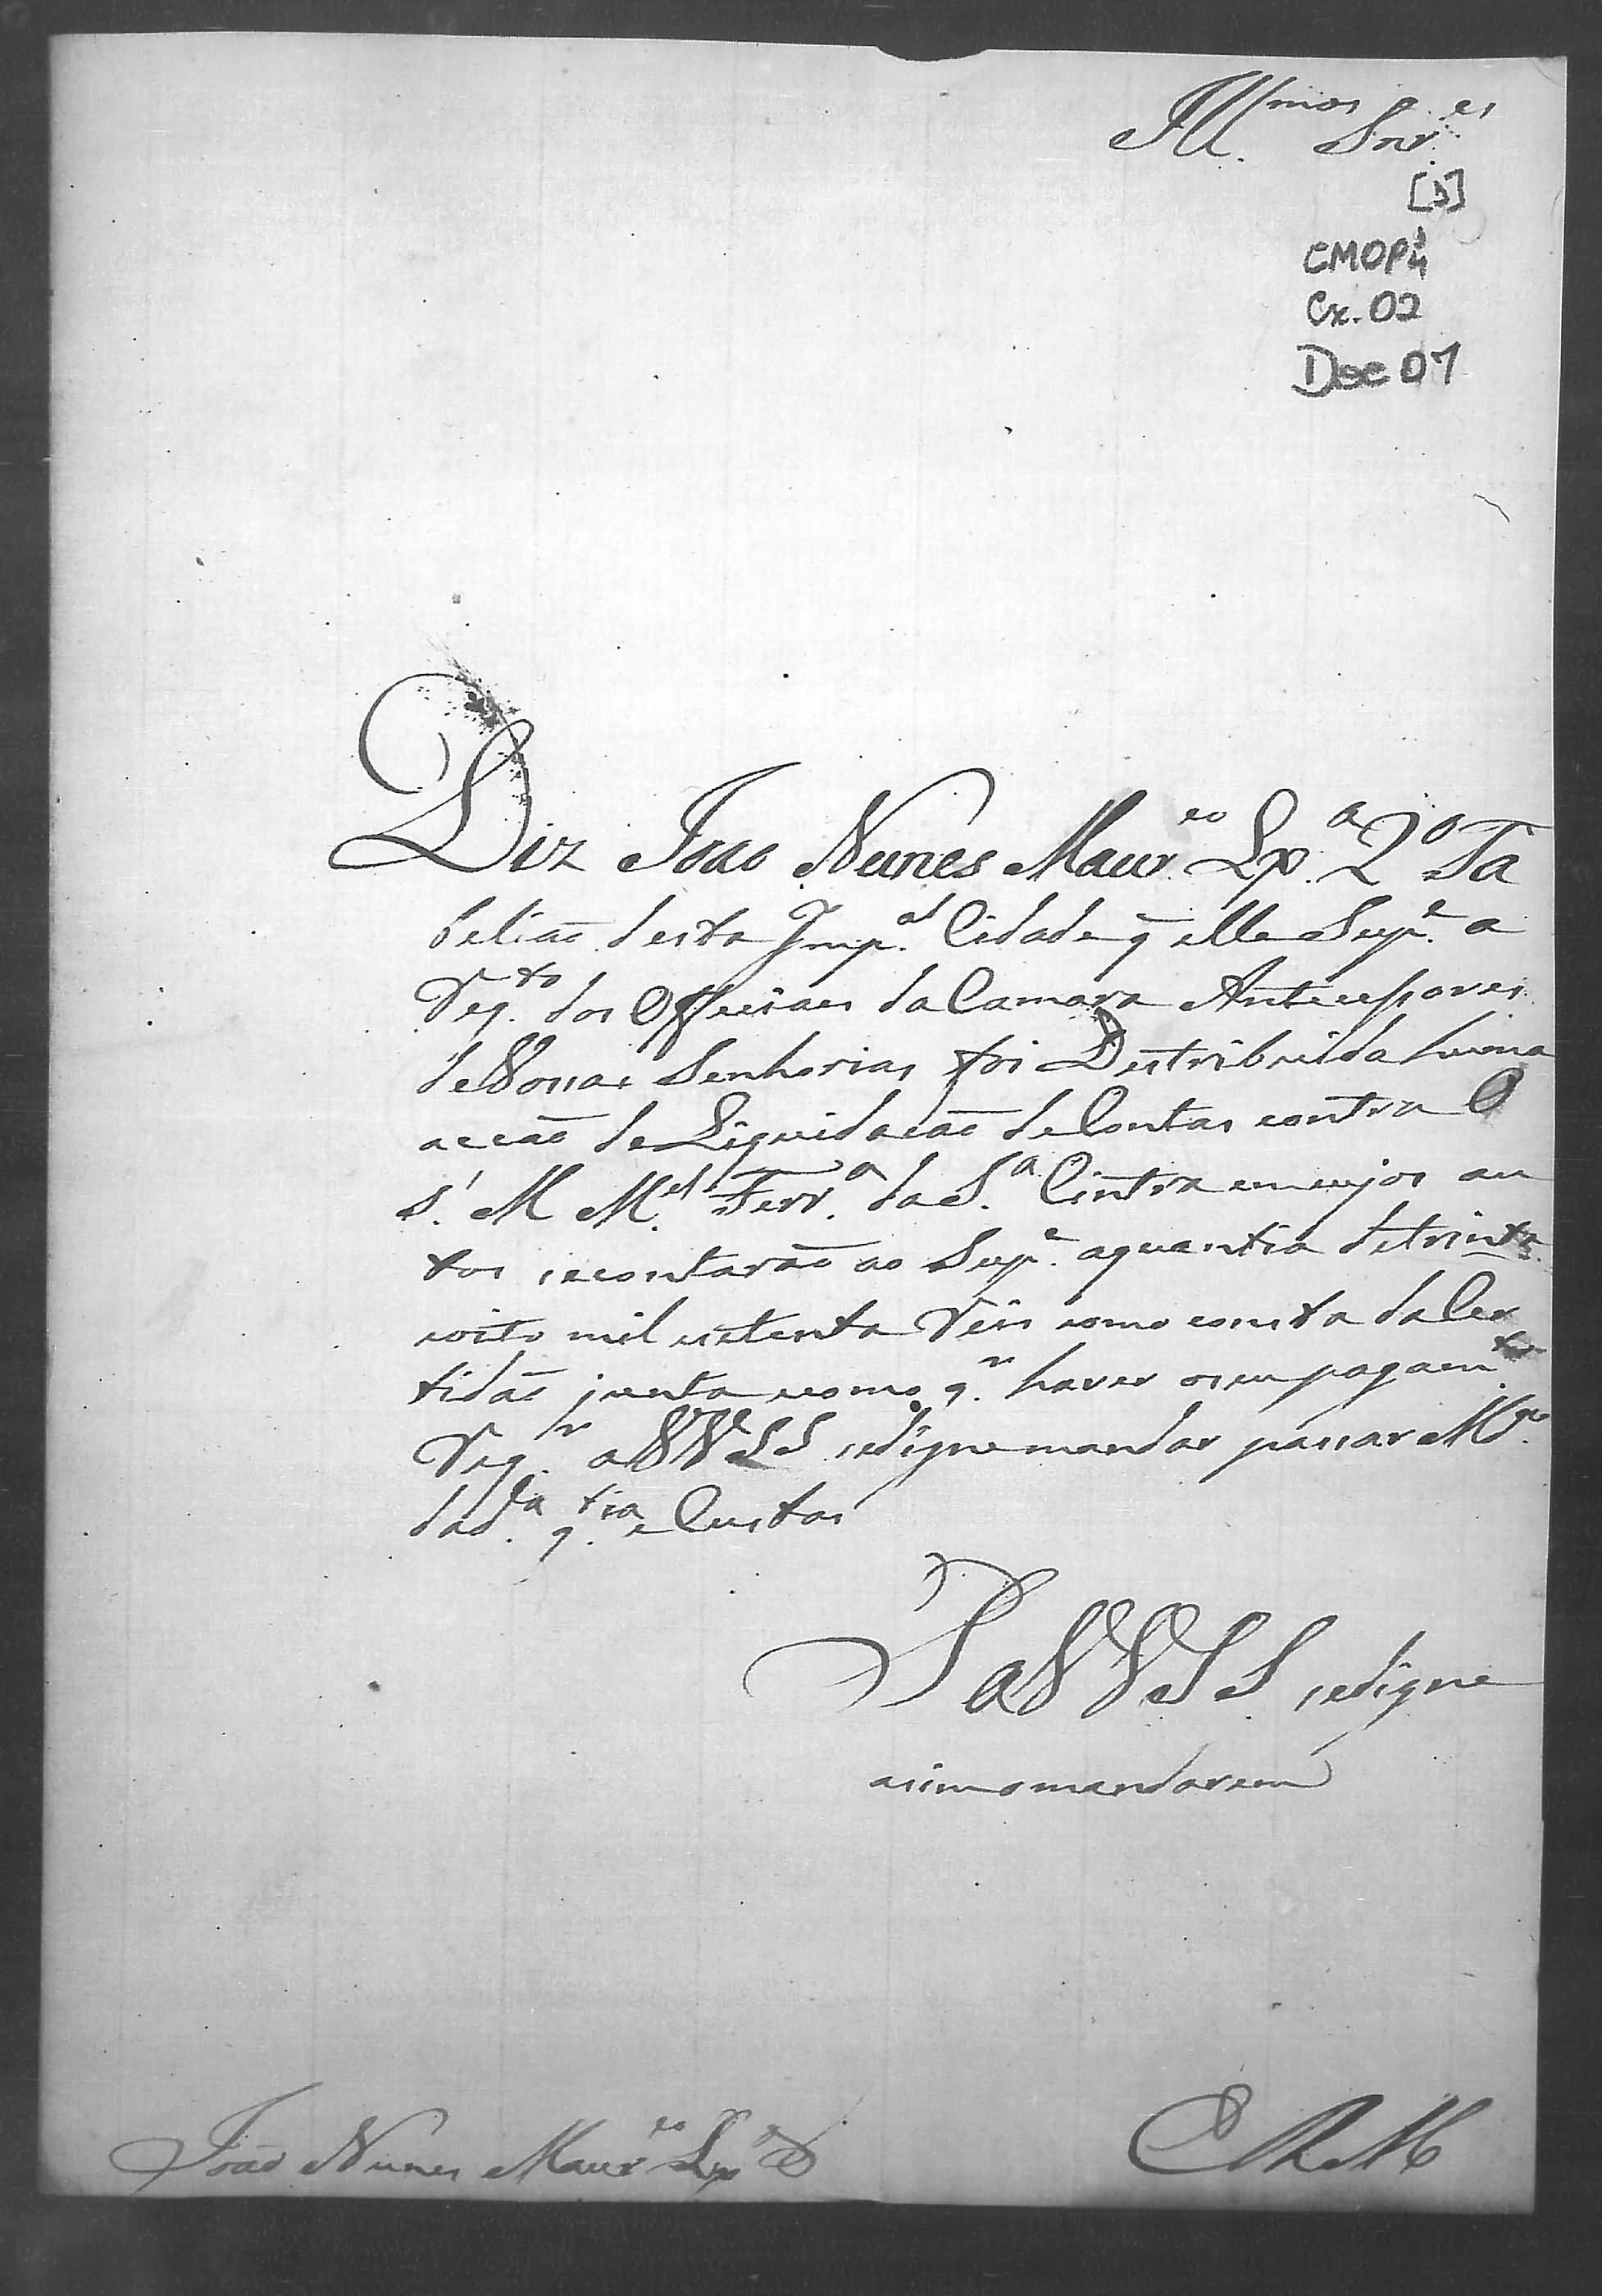 Ill.mos Snr.es
[D]
CMOP
Cx. 02
Doc 01
Diz João Nunes Maur.co Lx.a 2º Ta
beliaõ desta Imp.al Cidade q̃ elle Sup.e a
Req.to dos Officiaes da Camara Antecessores
de Vossas Senhorias foi Destribuida huma
acçaõ de Liquidacaõ de Contas contra O
M M.el Ferr.a da S.a Cintra em cujos au
tos se contaraõ ao Sup.e a quantia de trinta
e oito mil e setenta Reis como consta da Cer
tidaõ junta e como q.r haver o seu pagam.to
Req.r a VV SS se digne mandar passar M.do
da d.a q.tia e Custas
P a VV SS se digne
asim o mandarem
João Nunes Maur.co Lx.a
E R M